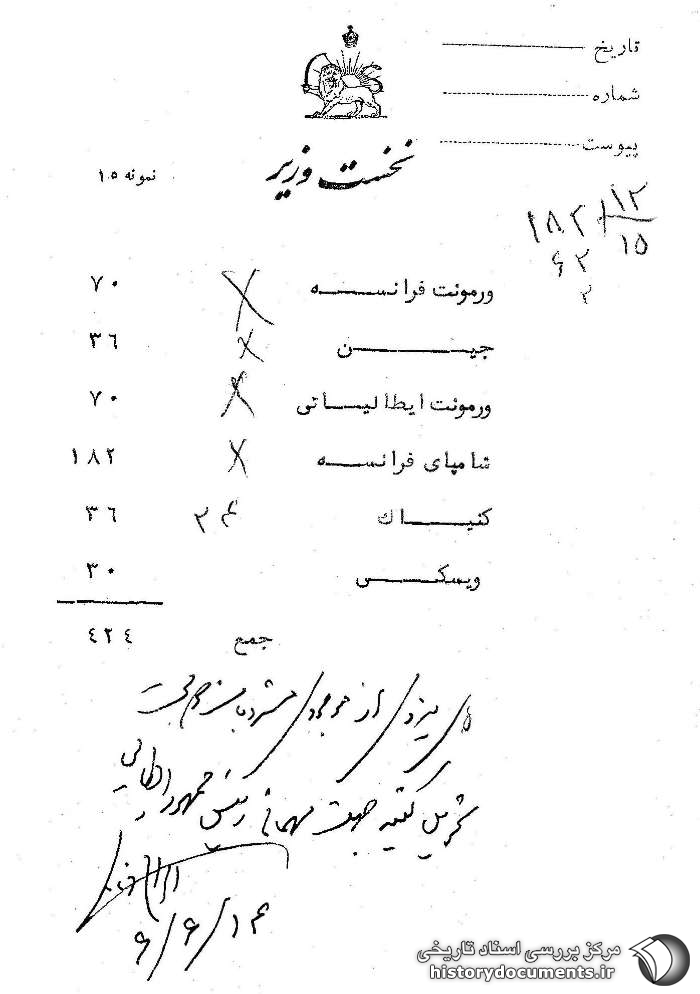 تاریخ
شماره
پیوست
نخست وزیر
نمونه ۱۰۵
۱۸۲ ۱۲
۶۲ ۱۵
۲
ورمونت فرانسه ۷۰
جین ۳۶
ورمونت ایطالیائی ۷۰
شامپای فرانسه ۱۸۲
کنیاک ۲۴ ۳۶
ویسکی ۳۰
جمع ۴۲۴
از موجودی
تحویل کنید جهت مهمانی رئیس جمهور ایطالیا
۶/۶/۱۴
مرکز بررسی اسناد تاریخی
historydocuments.ir